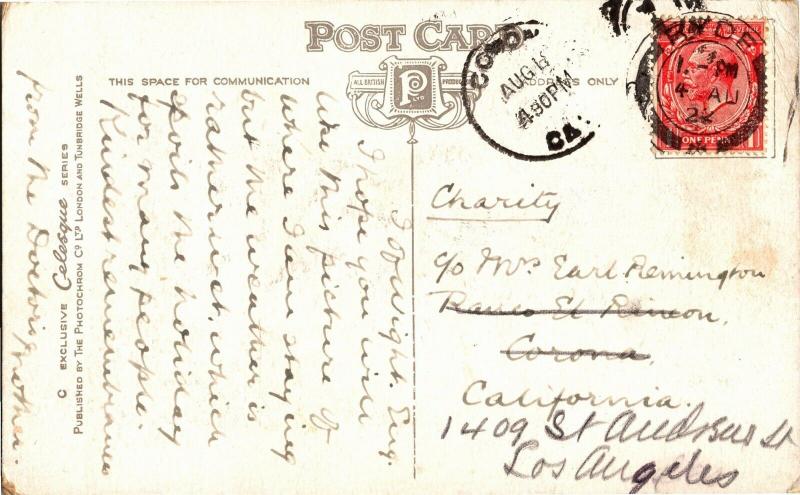 POST CARD
THIS SPACE FOR COMMUNICATION
ALL BRITISH
PRODUCTION
P
LTD
ADDRESS ONLY
C EXCLUSIVE Celesque SERIES
PUBLISHED BY THE PHOTOCHROM Co. LTD LONDON AND TUNBRIDGE WELLS
AUG 18
4 30PM
CA.
RYDE
PM
4 AU
22
ONE PENNY
I. of Wight. Eng.
I hope you will
like this picture of
where I am staying
but the weather is
rather wet, which
spoils the holiday
for many people.
Kindest remembrances
from the Doctor's mother.
Charity
c/o Mrs Earl Remington
Ranco El Rincon,
Corona,
California.
1409 St Andrews St
Los Angeles